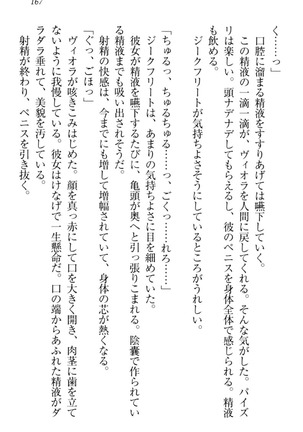 167
く……っ」
口腔に溜まる精液をすすりあげては嚥下していく。
この精液の一滴一滴が、ヴィオラを人間に変えてくれる。そんな気がした。パイズ
リは楽しい。頭ナデナデしてもらえるし、彼のペニスを身体全体で感じられる。精液
も飲める。
ジークフリートが気持ちよさそうにしているところがうれしい。
「ちゅるっ、ちゅるちゅる……っ、ごくっ……れろ……」
ジークフリートは、あまりの気持ちよさに目を細めていた。
彼女が精液を嚥下するたびに、亀頭が奥へと引っ張りこまれる。陰嚢で作られてい
る精液までも吸い出されそうだ。
射精の快感は、今までにも増して増幅されていて、身体の芯が熱くなる。
「ぐっ、ごほっ」
ヴィオラが咳きこみはじめた。顔を真っ赤にして口を大きく開き、肉茎に歯を立て
ないように我慢している。彼女はけなげで一生懸命だ。口の端からあふれた精液がダ
ラダラ垂れて、美貌を汚している。
射精が終わり、ペニスを引き抜く。